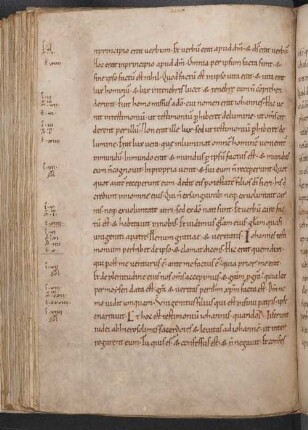 nprincipio erat verbum & verbu erat apud dm & ds erat verbu
hoc erat inprincipio apud dm Omnia per ipsum facta sunt &
sine ipso factu est nihil Quod factu est in ipso vita erat & vita erat
lux hominu & lux intenebris lucet & tenebre eam n
Fuit homo missus a do cui nomen erat iohannes hic ve
nit intestimoniu ut testimoniu phiberet de lumine ut oms cre
derent per illu Non erat ille lux sed ut testimoniu phiberet de
lumine Erat lux vera que inluminat omne homine veniente
inmundu Inmundo erat & mundus p ipsu factus est & mundus
eum n cognovit Inpropria venit & sui eum n receperunt Quot
quot aute receperunt eum dedit eis potestate filios di fieri his q
credunt innomine eius Qui n ex sanguinib neq ex voluntate car
nis neq ex voluntate viri sed ex do nati sunt Et verbu caro fac
tu est & habitavit innobis & vidimus gloria eius gloria quasi
unigeniti a patre plenum gratiae & veritatis Iohannes testi
monium perhibet de ipso & clamat dicens Hic erat quem dixi
qui post me venturus e ante me factus e quia prior me erat
& de plenitudine eius nos oms accepimus & gratia p gratia quia lex
per moysen data est gra & veritas per ihm xpm facta est Dm ne
mo vidit umquam Unigenitus filius qui est insinu patris ipse
enarravit Et hoc est testimoniu iohannis quando miserunt
iudei ab hierosolimis sacerdotes & levitas ad iohanne ut inter
rogarent eum Tu quis es & confessus est & n negavit & confes